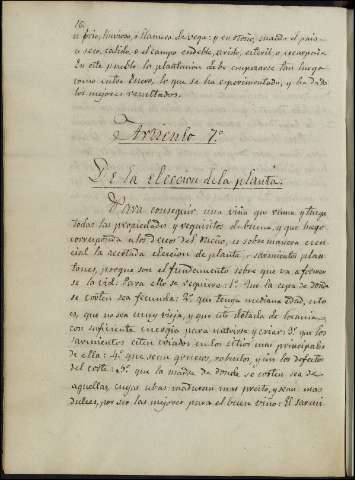 16.
o frio, lluvioso, o llanura de vega: y en otoño, cuando el pais
es seco, calido, o el campo endeble, arido, esteril, o
En este pueblo la plantacion debe empezarse tan luego
como entre Enero, lo que se ha esperimentado, y ha dado
los mejores resultados.
Articulo 7.º
De la eleccion de la planta.
Para conseguir una viña que reuna y tenga
todas las propiedades y requisitos de buena, y que haga
correspondencia a los deseos del dueño, es sobre manera esen-
cial la acertada eleccion de planta, o sarmientos plan-
tones, porque son el fundamento sobre que va a formar
se la vid. Para ello se requiere: 1.º Que la cepa de donde
se corten sea fecunda: 2.º que tenga mediana edad, esto
es, que no sea muy vieja, y que esté dotada de lozania,
con suficiente energia para nutrirse y criar: 3.º que los
sarmientos esten criados en los sitios mas principales
de ella: 4.º que sean gruesos, robustos, y sin los defectos
del corte: 5.º que la madre de donde se corten sea de
aquellas cuyas ubas maduran mas presto, y sean mas
dulces, por ser las mejores para el buen vino: El sarmi-